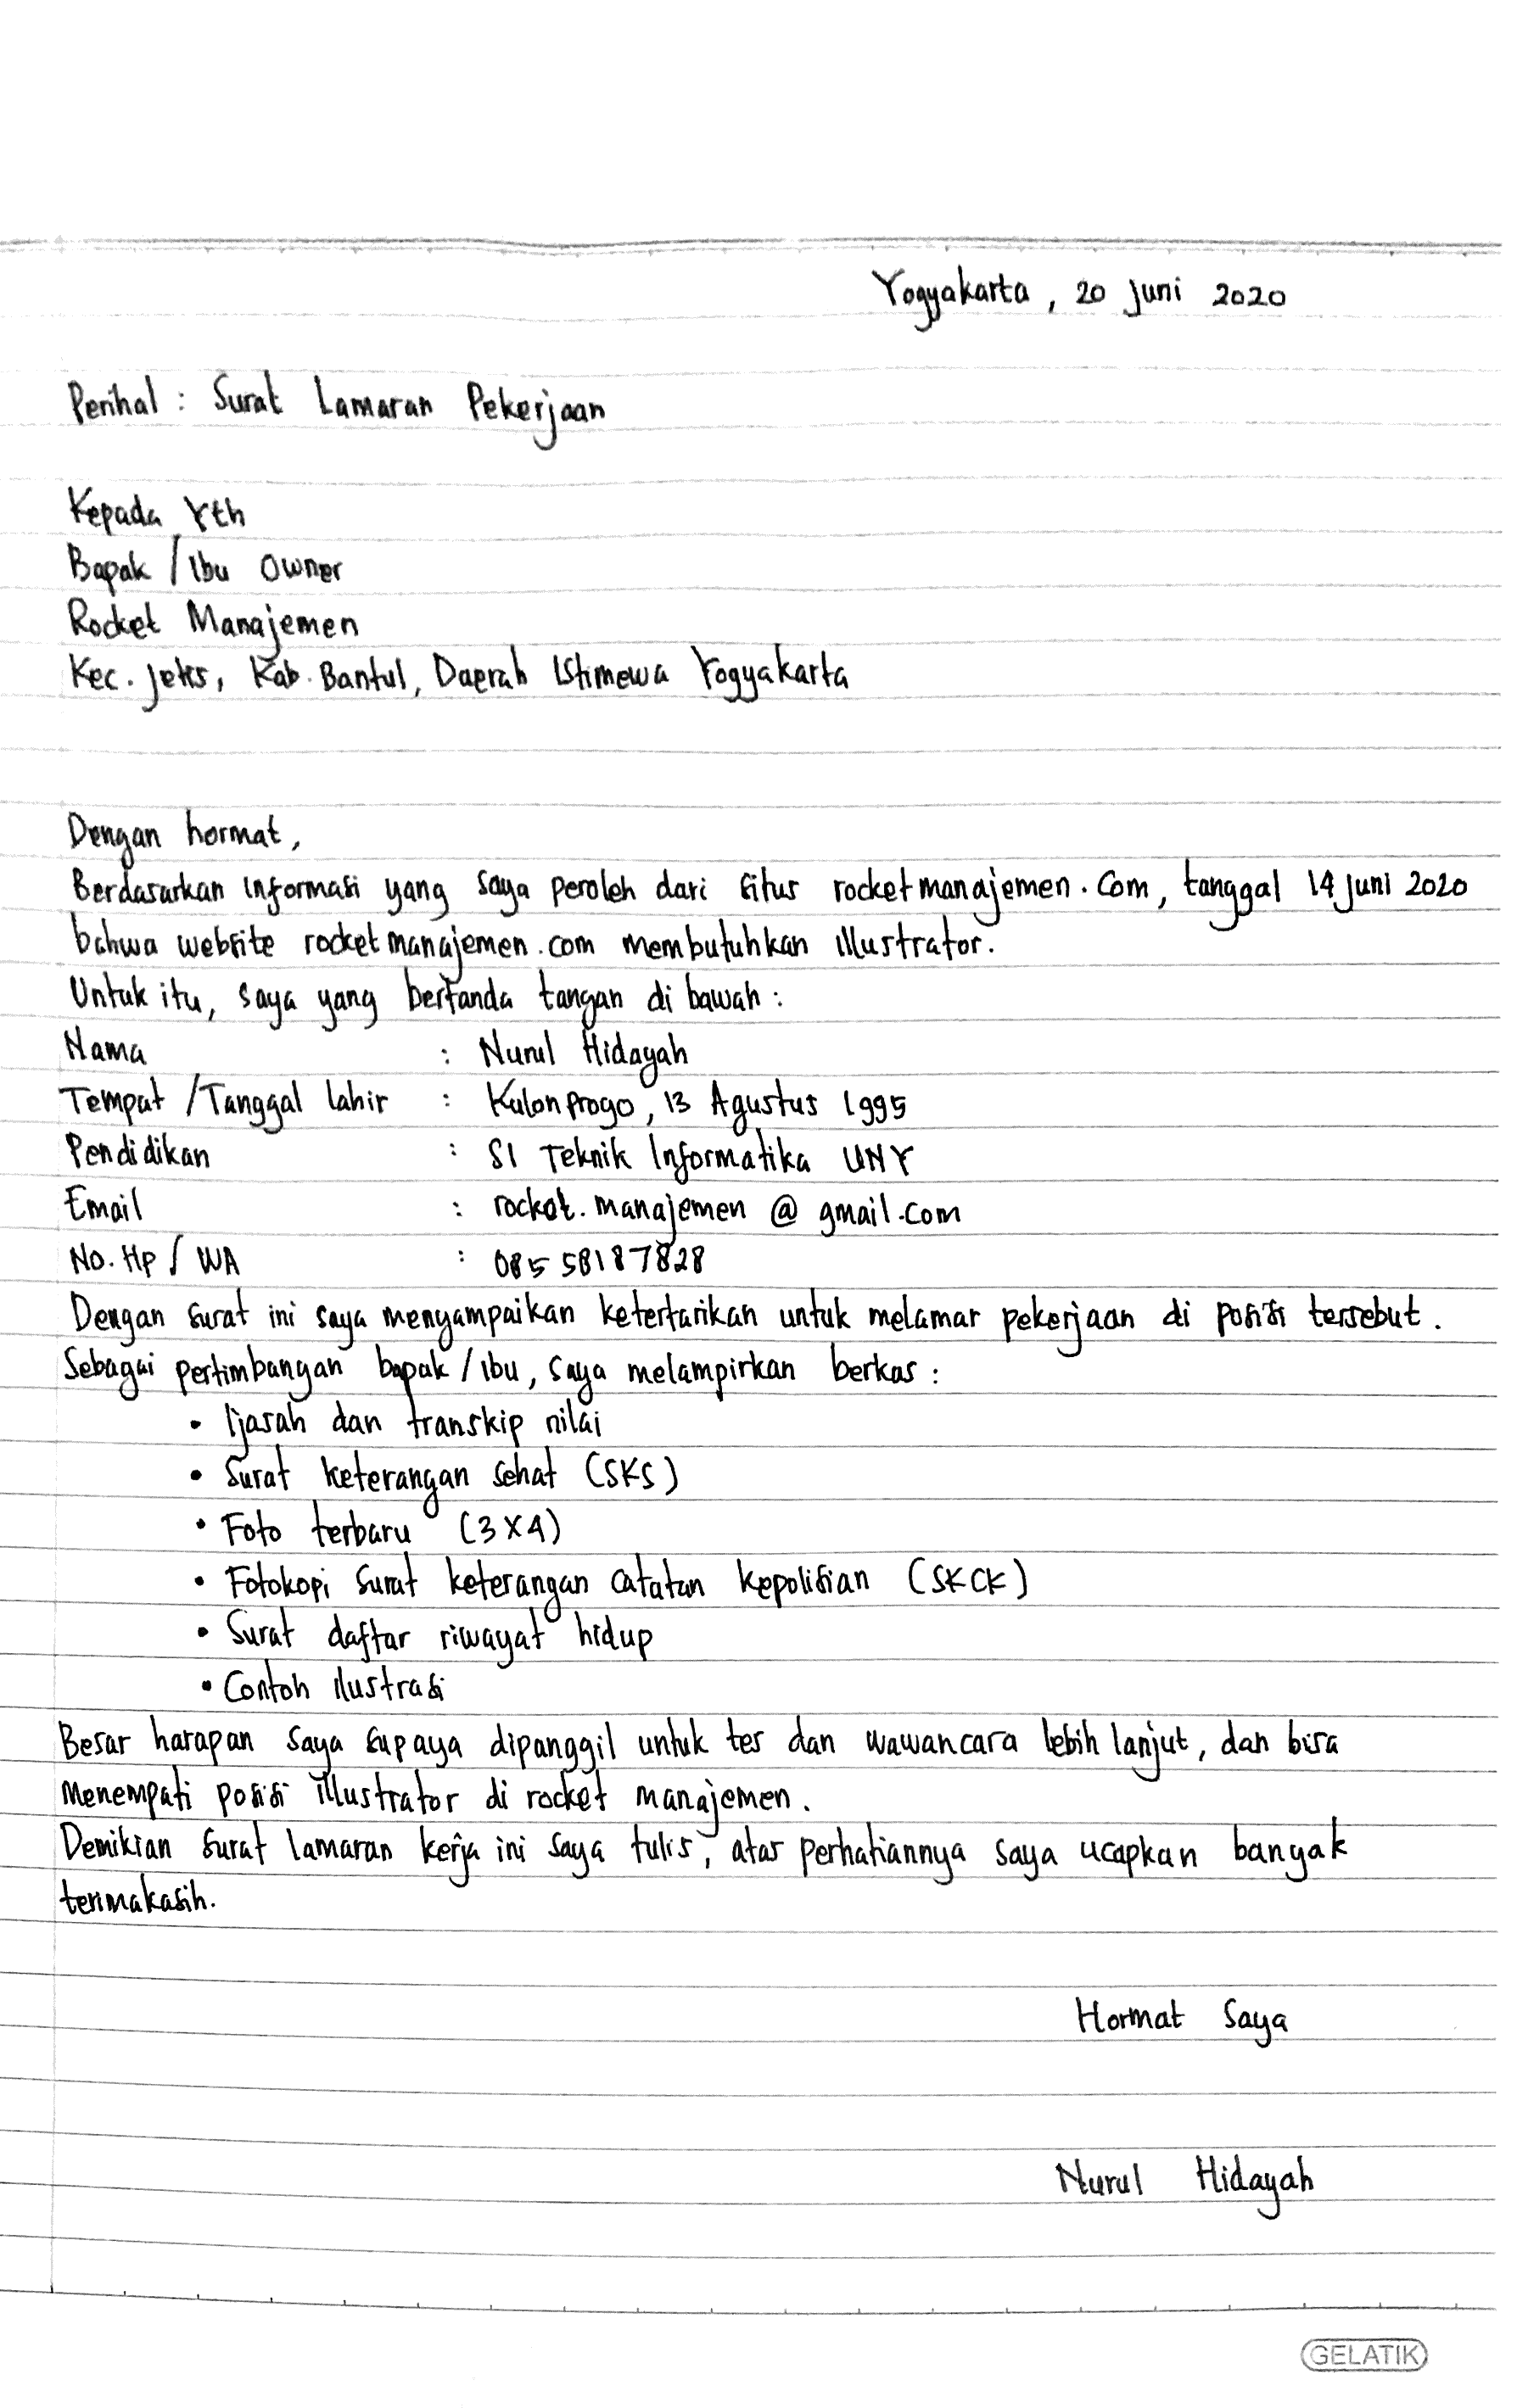 Yogyakarta, 20 Juni 2020
Perihal : Surat Lamaran Pekerjaan
Kepada Yth
Bapak / Ibu Owner
Rocket Manajemen
Kec. Jetis, Kab. Bantul, Daerah Istimewa Yogyakarta
Dengan hormat,
Berdasarkan informasi yang saya peroleh dari situs rocketmanajemen.com, tanggal 14 Juni 2020
bahwa website rocketmanajemen.com membutuhkan illustrator.
Untuk itu, saya yang bertanda tangan di bawah :
Nama : Nurul Hidayah
Tempat /Tanggal lahir : Kulonprogo, 13 Agustus 1995
Pendidikan : S1 Teknik Informatika UNY
Email : rocket.manajemen @ gmail.com
No. Hp / WA : 08558187828
Dengan surat ini saya menyampaikan ketertarikan untuk melamar pekerjaan di posisi tersebut.
Sebagai pertimbangan bapak / ibu, saya melampirkan berkas :
• Ijasah dan transkip nilai
• Surat keterangan sehat (SKS)
• Foto terbaru (3X4)
• Fotokopi surat keterangan catatan kepolisian (SKCK)
• Surat daftar riwayat hidup
• Contoh ilustrasi
Besar harapan saya supaya dipanggil untuk tes dan wawancara lebih lanjut, dan bisa
menempati posisi illustrator di rocket manajemen.
Demikian surat lamaran kerja ini saya tulis, atas perhatiannya saya ucapkan banyak
terimakasih.
Hormat Saya
Nurul Hidayah
GELATIK